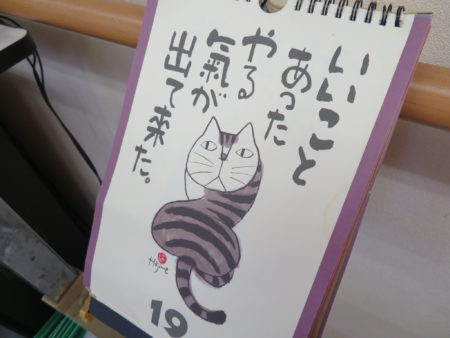 いいこと
あった
やる
氣が
出て来た。
Hajime
19